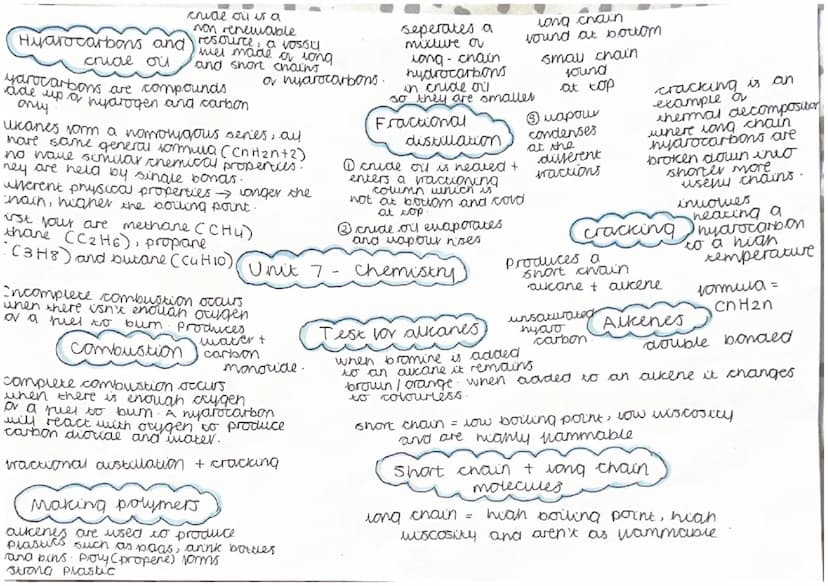 Hydrocarbons and
crude oil
crude oil is a
non renewable
resource, a fossil
fuel made of long
and short chains
of hydrocarbons.
ydrocarbons are compounds
ade up of hydrogen and carbon
only.
lkanes form a homolygous series, all
have same general formula (CnH2n+2)
no have similar chemical properties.
hey are held by single bonds.
ifferent physical properties → longer the
hain, higher the boiling point.
irst four are methane (CH4)
thane (C2H6), propane
(C3H8) and butane (C4H10)
seperates a
mixture of
long-chain
hydrocarbons
in crude oil
so they are smaller
long chain
found at bottom
small chain
found
at top
Fractional
distillation
① crude oil is heated +
enters a fractioning
column which is
hot at bottom and cold
at top.
② crude oil evaporates
and vapour rises
③ vapour
condenses
at the
different
fractions
cracking is an
example of
thermal decomposition
where long chain
hydrocarbons are
broken down into
shorter more
useful chains.
cracking
involves
heating a
hydrocarbon
to a high
temperature
produces a
short chain
alkane + alkene
Unit 7 - Chemistry
Incomplete combustion occurs
when there isn't enough oxygen
for a fuel to burn. produces
water +
carbon
monoxide.
Combustion
complete combustion occurs
when there is enough oxygen
for a fuel to burn. A hydrocarbon
will react with oxygen to produce
carbon dioxide and water.
Test for alkanes
when bromine is added
to an alkane it remains
brown/orange. when added to an alkene it changes
to colourless.
Alkenes
unsaturated
hydro
carbon
formula =
CnH2n
double bonded
fractional distillation + cracking
Making polymers
alkenes are used to produce
plastics such as bags, drink bottles
and bins. Poly(propene) forms
strong plastic
short chain = low boiling point, low viscosity
and are highly flammable
Short chain + long chain
molecules
long chain = high boiling point, high
viscosity and aren't as flammable.